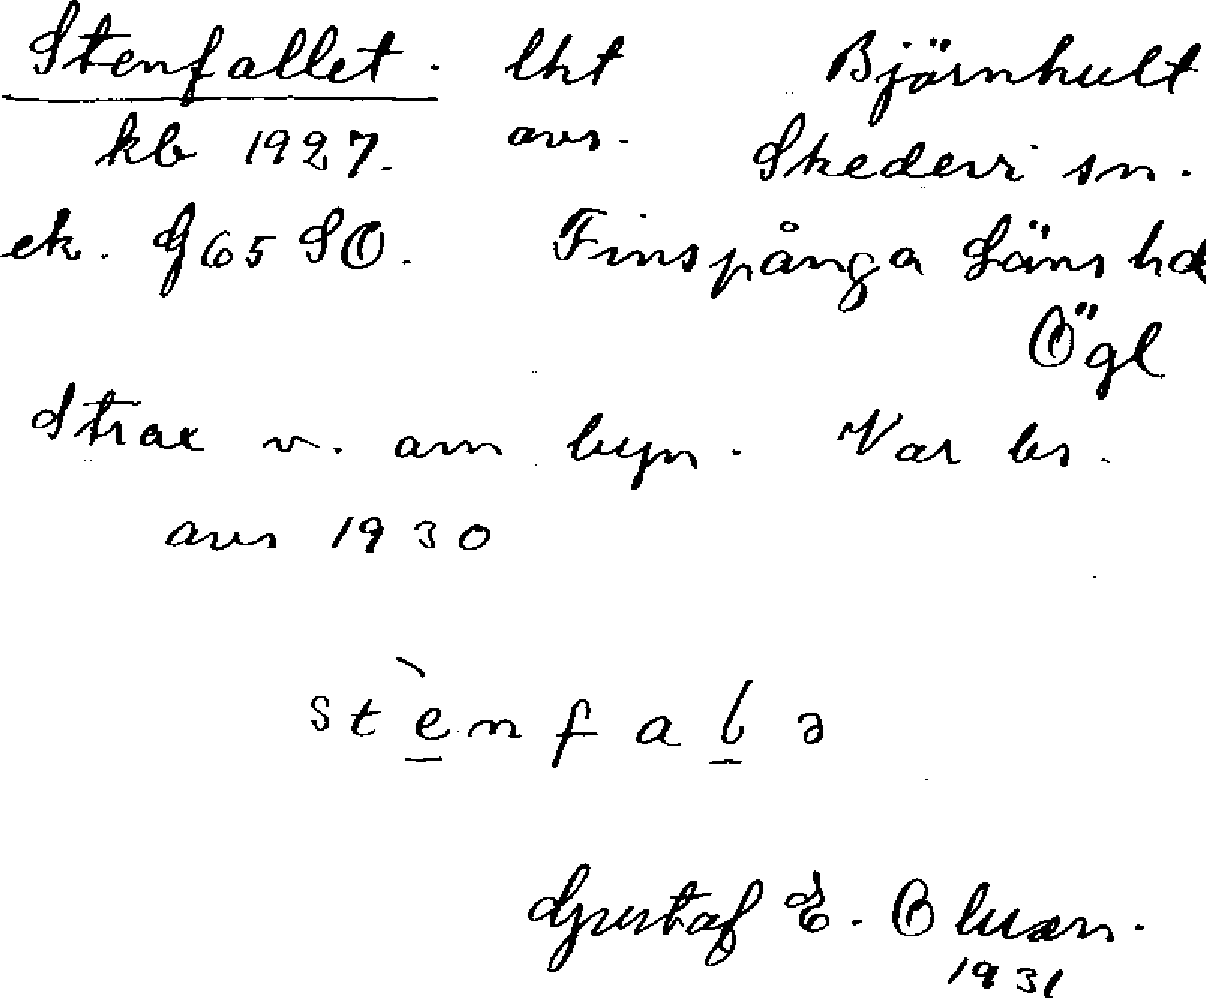 Stenfallet. lht Björnhult
kb 1927. avs. Skedevi sn.
ek. G65SO. Finspånga Läns hd
Ögl
Strax v. om byn. Var bs.
avs 1930
stènfalə
Gustaf E. Olsson.
1931